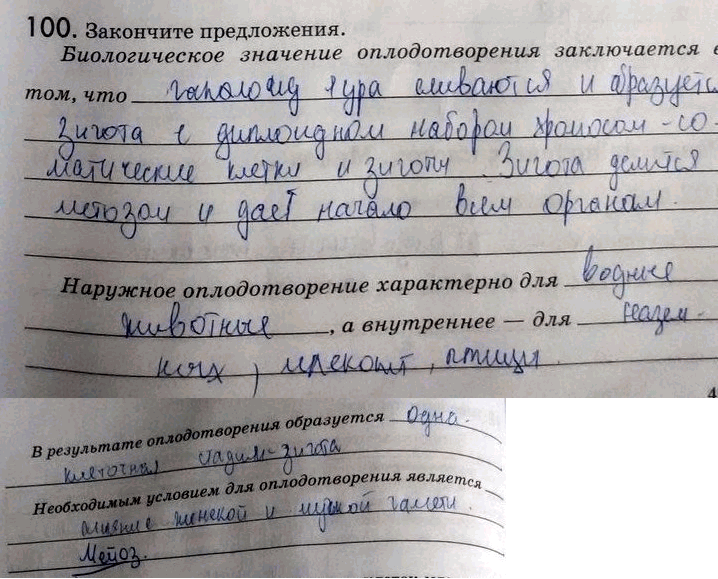 100. Закончите предложения.
Биологическое значение оплодотворения заключается в
том, что гаплоид ядра сливаются и образуется
зигота с диплоидном набором хромосом - со-
матические клетки и зиготы. Зигота делится
метозом и даёт начало всем органам.
Наружное оплодотворение характерно для водные
животные, а внутреннее — для назем-
ных, млекопит, птицы.
4
В результате оплодотворения образуется одно-
клеточная стадия-зигота
Необходимым условием для оплодотворения является
слияние женской и мужской гаметы.
Мейоз.